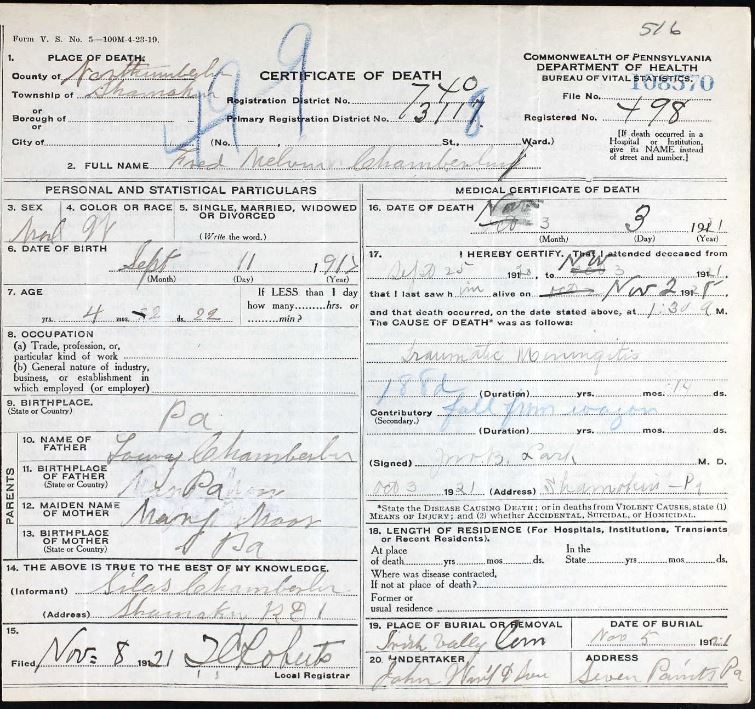 516
Form V. S. No. 5—100M-4-23-19.
1. PLACE OF DEATH.
County of Northumberla
Township of Shamokin
or
Borough of
or
City of
CERTIFICATE OF DEATH
Registration District No. 740
Primary Registration District No. 3117 8
499
(No. St., Ward.)
COMMONWEALTH OF PENNSYLVANIA
DEPARTMENT OF HEALTH
BUREAU OF VITAL STATISTICS.
108370
File No.
Registered No. 498
[If death occurred in a
Hospital or Institution,
give its NAME instead
of street and number.]
2. FULL NAME Fred Melvin Chamberlin
PERSONAL AND STATISTICAL PARTICULARS
3. SEX
4. COLOR OR RACE
5. SINGLE, MARRIED, WIDOWED
OR DIVORCED
(Write the word.)
Mal W
6. DATE OF BIRTH
Sept 11 1917
(Month) (Day) (Year)
7. AGE
If LESS than 1 day
how many hrs. or
min.?
4 yrs. 2 mos. 22 ds.
8. OCCUPATION
(a) Trade, profession, or,
particular kind of work
(b) General nature of industry,
business, or establishment in
which employed (or employer)
9. BIRTHPLACE.
(State or Country)
Pa
PARENTS
10. NAME OF
FATHER
Chamberlin
11. BIRTHPLACE
OF FATHER
(State or Country)
Pa
12. MAIDEN NAME
OF MOTHER
Mary
13. BIRTHPLACE
OF MOTHER
(State or Country)
Pa
14. THE ABOVE IS TRUE TO THE BEST OF MY KNOWLEDGE.
(Informant) Silas Chamberlin
(Address) Shamokin R D 1
15.
Filed Nov. 8 1921 Roberts
Local Registrar
MEDICAL CERTIFICATE OF DEATH
16. DATE OF DEATH
Nov 3 3 1921
(Month) (Day) (Year)
17. I HEREBY CERTIFY, That I attended deceased from
Sept 25 191, to Nov 3 191,
that I last saw him alive on Nov 2 191
and that death occurred, on the date stated above, at 1.30 M.
The CAUSE OF DEATH* was as follows:
Traumatic Meningitis
188d
(Duration) yrs. mos. 14 ds.
Contributory fall from wagon
(Secondary.)
(Duration) yrs. mos. ds.
(Signed) M. D.
3 1921 (Address) Shamokin - Pa
*State the DISEASE CAUSING DEATH; or in deaths from VIOLENT CAUSES, state (1)
MEANS OF INJURY; and (2) whether ACCIDENTAL, SUICIDAL, OR HOMICIDAL.
18. LENGTH OF RESIDENCE (For Hospitals, Institutions, Transients
or Recent Residents).
At place
of death yrs mos. ds.
In the
State yrs. mos. ds.
Where was disease contracted,
If not at place of death?
Former or
usual residence
19. PLACE OF BURIAL OR REMOVAL
Irish Valley Cem
DATE OF BURIAL
Nov 5 1921
20. UNDERTAKER
John
ADDRESS
Seven Points Pa